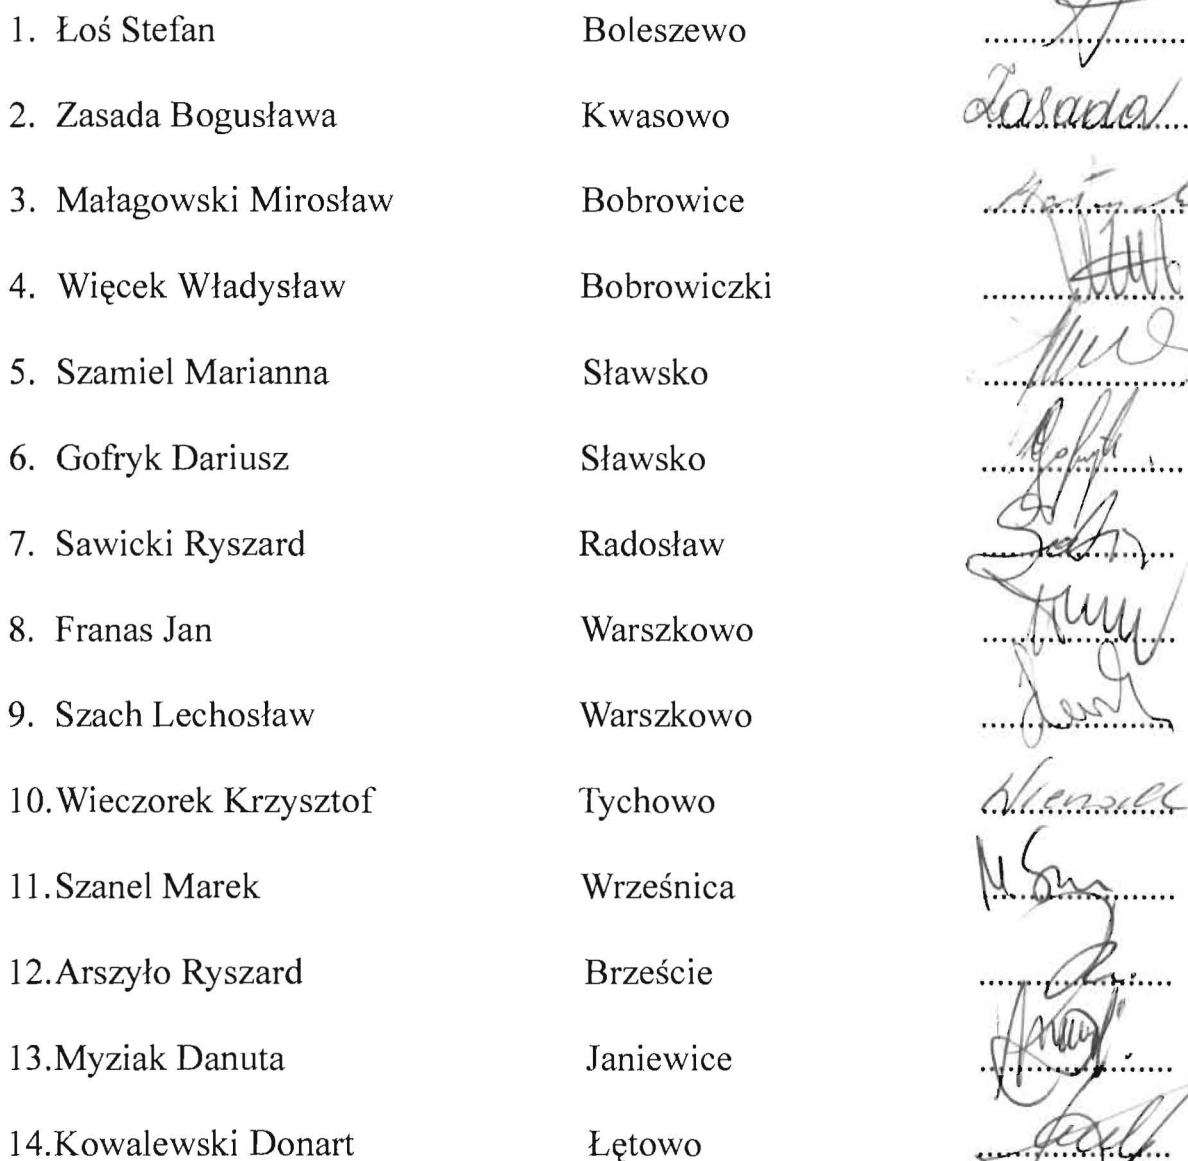 1. Łoś Stefan Boleszewo ....................
2. Zasada Bogusława Kwasowo Zasada
3. Małagowski Mirosław Bobrowice ....................
4. Więcek Władysław Bobrowiczki ....................
5. Szamiel Marianna Sławsko ....................
6. Gofryk Dariusz Sławsko ....................
7. Sawicki Ryszard Radosław ....................
8. Franas Jan Warszkowo ....................
9. Szach Lechosław Warszkowo ....................
10.Wieczorek Krzysztof Tychowo ....................
11.Szanel Marek Wrześnica ....................
12.Arszyło Ryszard Brzeście ....................
13.Myziak Danuta Janiewice ....................
14.Kowalewski Donart Łętowo ....................